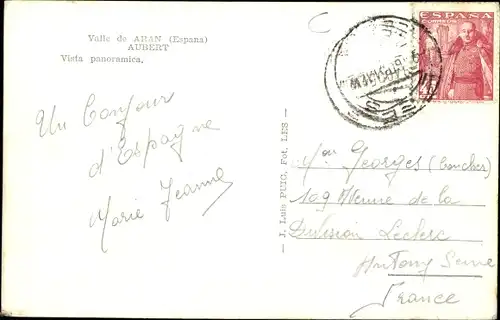 Valle de ARAN (Espana)
AUBERT
Vista panoramica.
ESPAÑA
CORREOS
Un Bonjour
d'Espagne
Marie Jeanne
— J. Luis PUIG, Fot. LES —
Mon Georges (Boucher)
109 Avenue de la
Division Leclerc
Antony Seine
France